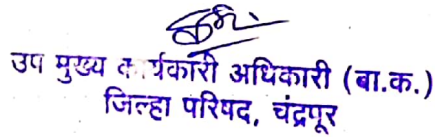 उप मुख्य कार्यकारी अधिकारी (बा.क.)
जिल्हा परिषद, चंद्रपूर